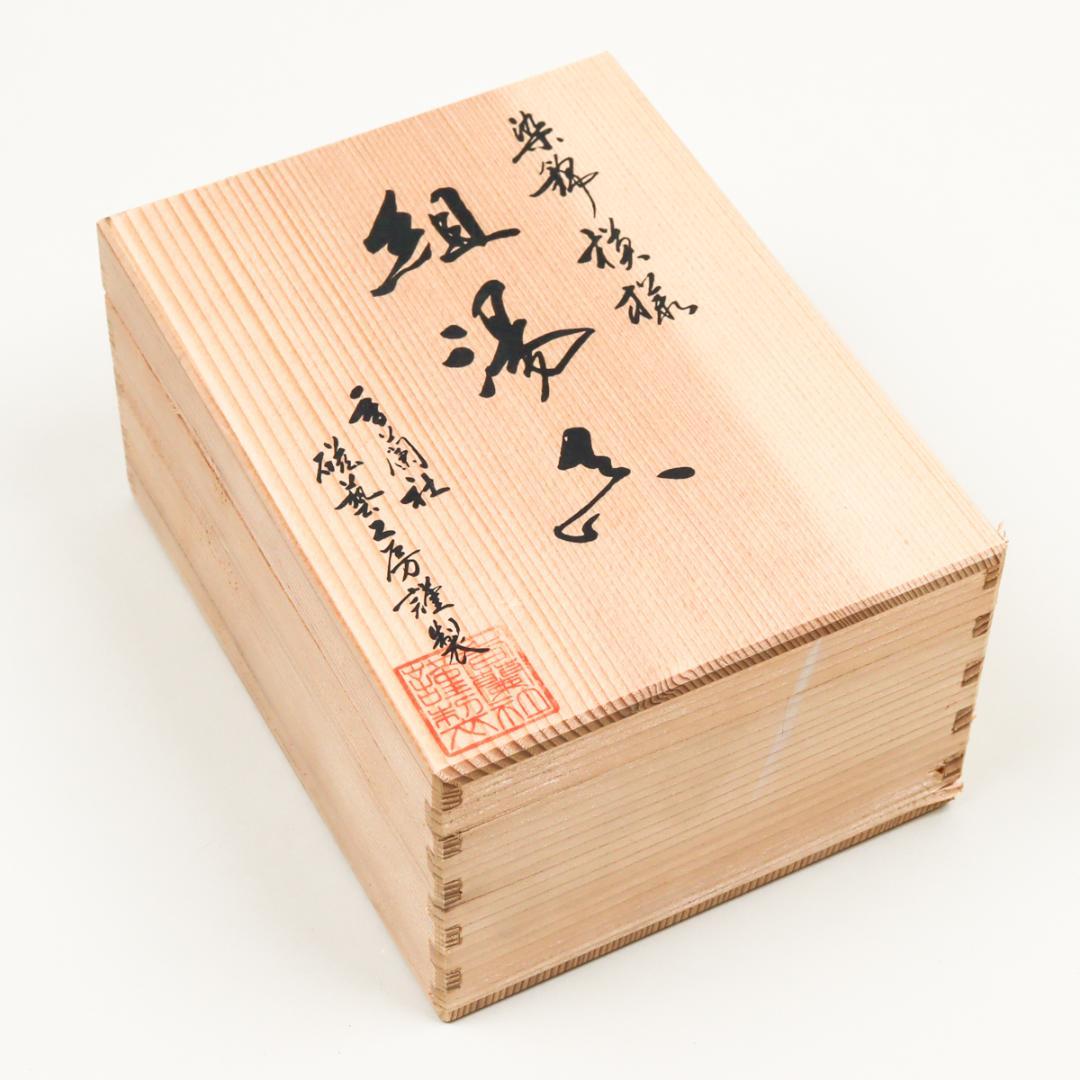 染錦模様
組湯呑
香蘭社
磁藝工房謹製
香蘭社
謹製